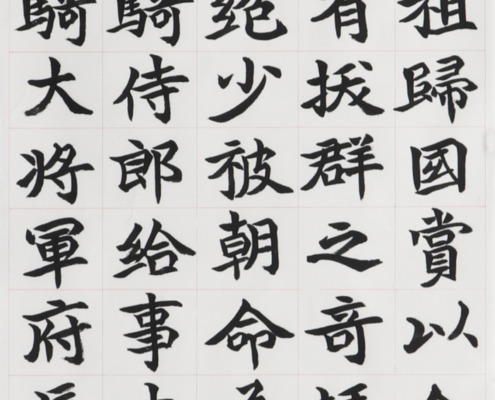 祖歸國賞以
有拔群之奇
絕少被朝命
騎侍郎給事
騎大將軍府